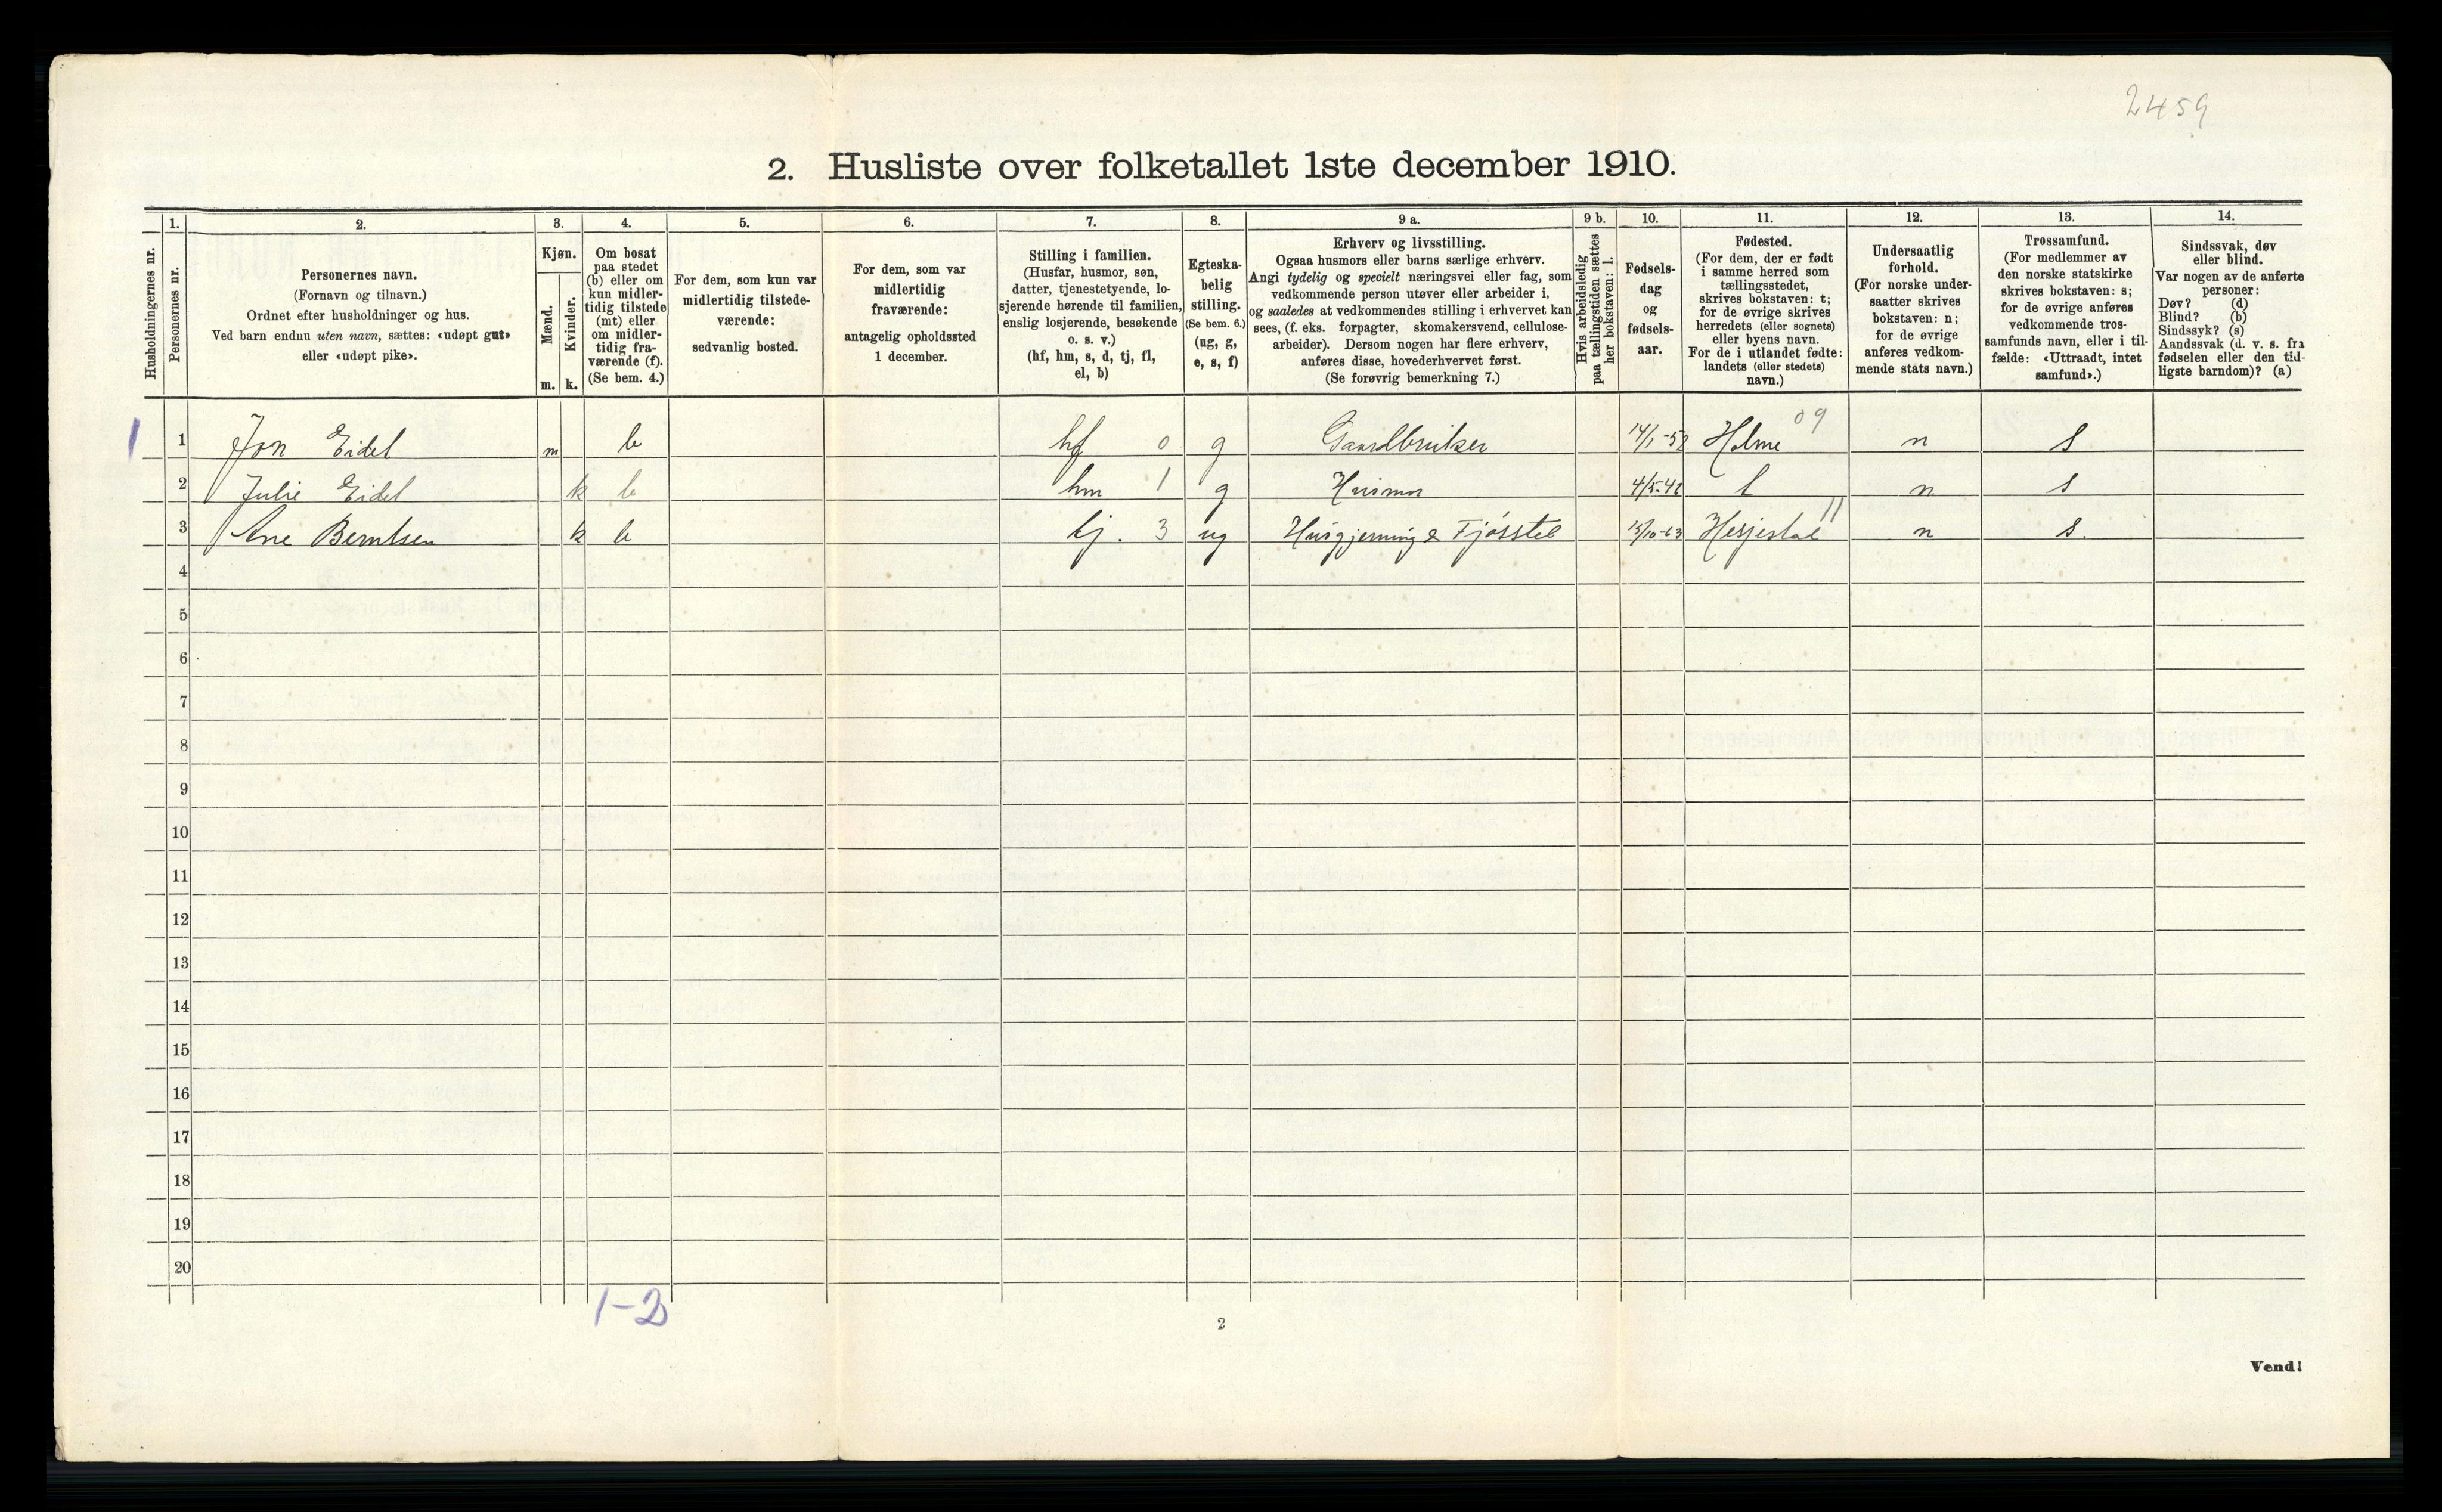 2459
2. Husliste over folketallet 1ste december 1910.
Husholdningernes nr.
1.
Personernes nr.
2.
Personernes navn.
(Fornavn og tilnavn.)
Ordnet efter husholdninger og hus.
Ved barn endnu uten navn, sættes: «udøpt gut»
eller «udøpt pike».
3.
Kjøn.
Mænd.
Kvinder.
m. k.
4.
Om bosat
paa stedet
(b) eller om
kun midler-
tidig tilstede
(mt) eller
om midler-
tidig fra-
værende (f).
(Se bem. 4.)
5.
For dem, som kun var
midlertidig tilstede-
værende:
sedvanlig bosted.
6.
For dem, som var
midlertidig
fraværende:
antagelig opholdssted
1 december.
7.
Stilling i familien.
(Husfar, husmor, søn,
datter, tjenestetyende, lo-
sjerende hørende til familien,
enslig losjerende, besøkende
o. s. v.)
(hf, hm, s, d, tj, fl,
el, b)
8.
Egteska-
belig
stilling.
(Se bem. 6.)
(ug, g,
e, s, f)
9 a.
Erhverv og livsstilling.
Ogsaa husmors eller barns særlige erhverv.
Angi tydelig og specielt næringsvei eller fag, som
vedkommende person utøver eller arbeider i,
og saaledes at vedkommendes stilling i erhvervet kan
sees, (f. eks. forpagter, skomakersvend, cellulose-
arbeider). Dersom nogen har flere erhverv,
anføres disse, hovederhvervet først.
(Se forøvrig bemerkning 7.)
9 b.
Hvis arbeidsledig
paa tællingstiden sættes
her bokstaven: l.
10.
Fødsels-
dag
og
fødsels-
aar.
11.
Fødested.
(For dem, der er født
i samme herred som
tællingsstedet,
skrives bokstaven: t;
for de øvrige skrives
herredets (eller sognets)
eller byens navn.
For de i utlandet fødte:
landets (eller stedets)
navn.)
12.
Undersaatlig
forhold.
(For norske under-
saatter skrives
bokstaven: n;
for de øvrige
anføres vedkom-
mende stats navn.)
13.
Trossamfund.
(For medlemmer av
den norske statskirke
skrives bokstaven: s;
for de øvrige anføres
vedkommende tros-
samfunds navn, eller i til-
fælde: «Uttraadt, intet
samfund».)
14.
Sindssvak, døv
eller blind.
Var nogen av de anførte
personer:
Døv? (d)
Blind? (b)
Sindssyk? (s)
Aandssvak (d. v. s. fra
fødselen eller den tid-
ligste barndom)? (a)
1 1 Jon Eidet m b hf 0 g Gaardbruker 14/1-52 Holme 09 n s
2 Julie Eidet k b hm 1 g Husmor t n s
3 Ane Berntsen k b tj. 3 ug Husgjerning & Fjösstel 15/10-63 11 n s.
4
5
6
7
8
9
10
11
12
13
14
15
16
17
18
19
20
1-2
2
Vend!